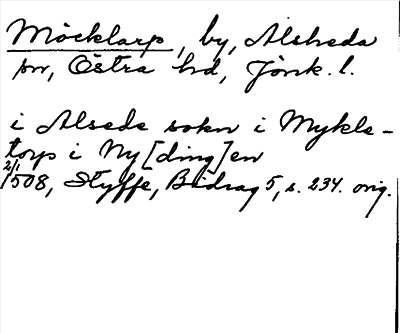 Möcklarp, by, Alsheda
sn, Östra hd, Jönk. l.
i Alsede sokn i Mykle-
torp i Ny[ding]en
2/1 1508, Styffe, Bidrag 5, s. 234. orig.